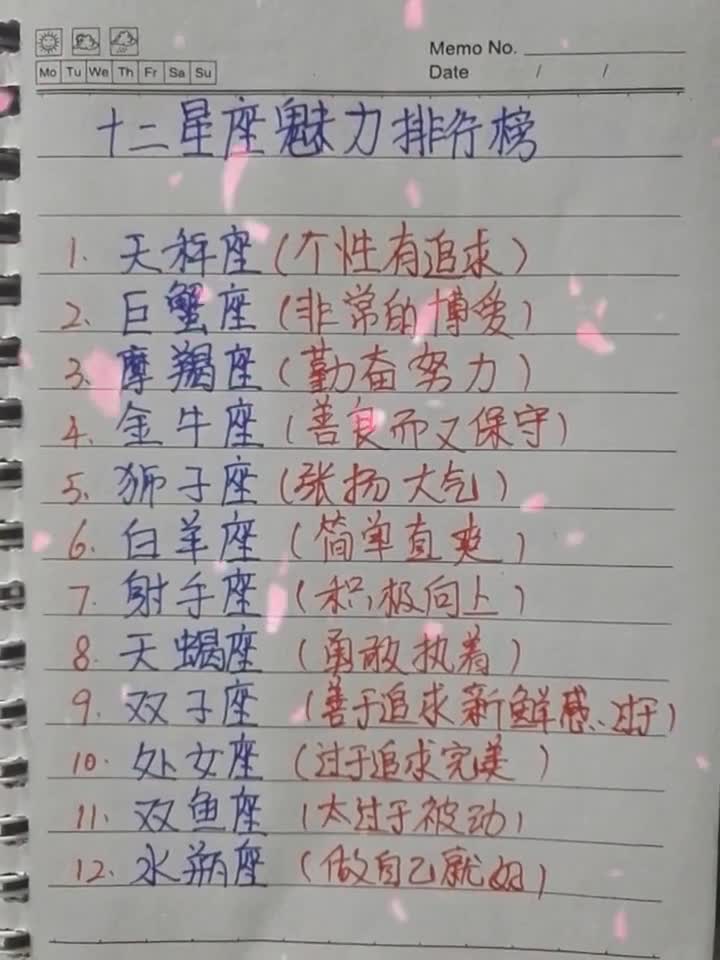 Memo No.
Mo Tu We Th Fr Sa Su
Date / /
十二星座魅力排行榜
1. 天秤座(个性有追求)
2. 巨蟹座(非常的博爱)
3. 摩羯座(勤奋努力)
4. 金牛座(善良而又保守)
5. 狮子座(张扬大气)
6. 白羊座(简单直爽)
7. 射手座(积极向上)
8. 天蝎座(勇敢执着)
9. 双子座(善于追求新鲜感、过于)
10. 处女座(过于追求完美)
11. 双鱼座(太过于被动)
12. 水瓶座(做自己就好)